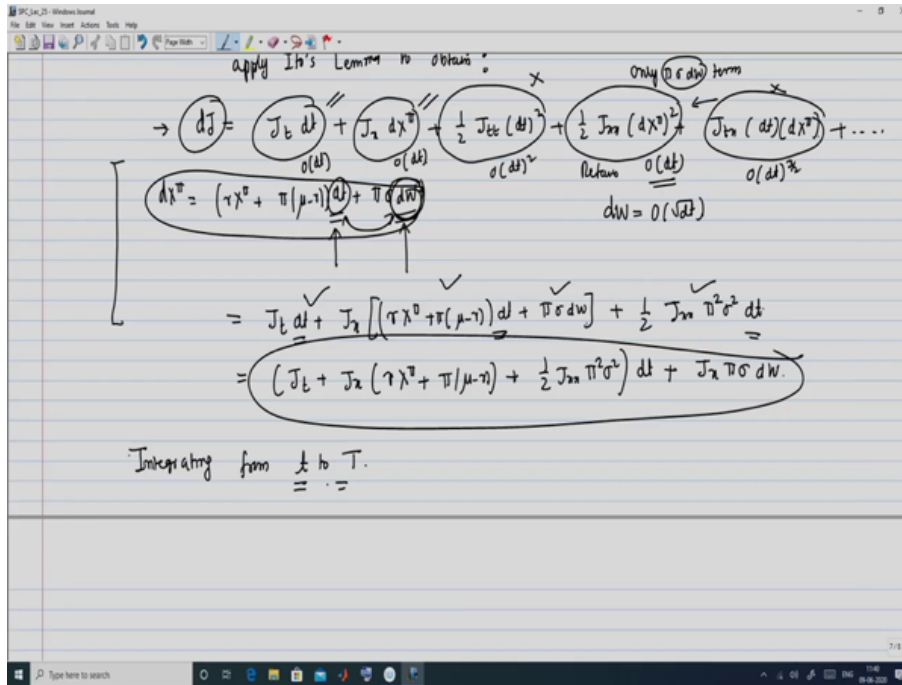 SPC_Lec_25 - Windows Journal
File Edit View Insert Actions Tools Help
Page Width
apply Ito's Lemma to obtain :
only πσdW term
→ dJ = J_t dt + J_x dX^π + 1/2 J_tt (dt)^2 + 1/2 J_xx (dX^π)^2 + J_tx (dt)(dX^π) + ....
O(dt) O(dt) O(dt)^2 Retain O(dt) O(dt)^3/2
dX^π = (rX^π + π(μ-r)) dt + πσ dW
dW = O(√dt)
= J_t dt + J_x [(rX^π + π(μ-r)) dt + πσ dW] + 1/2 J_xx π^2σ^2 dt
= (J_t + J_x (rX^π + π(μ-r) + 1/2 J_xx π^2σ^2) dt + J_x πσ dW.
Integrating from t to T.
7/8
Type here to search
ENG
11:40
09-06-2020